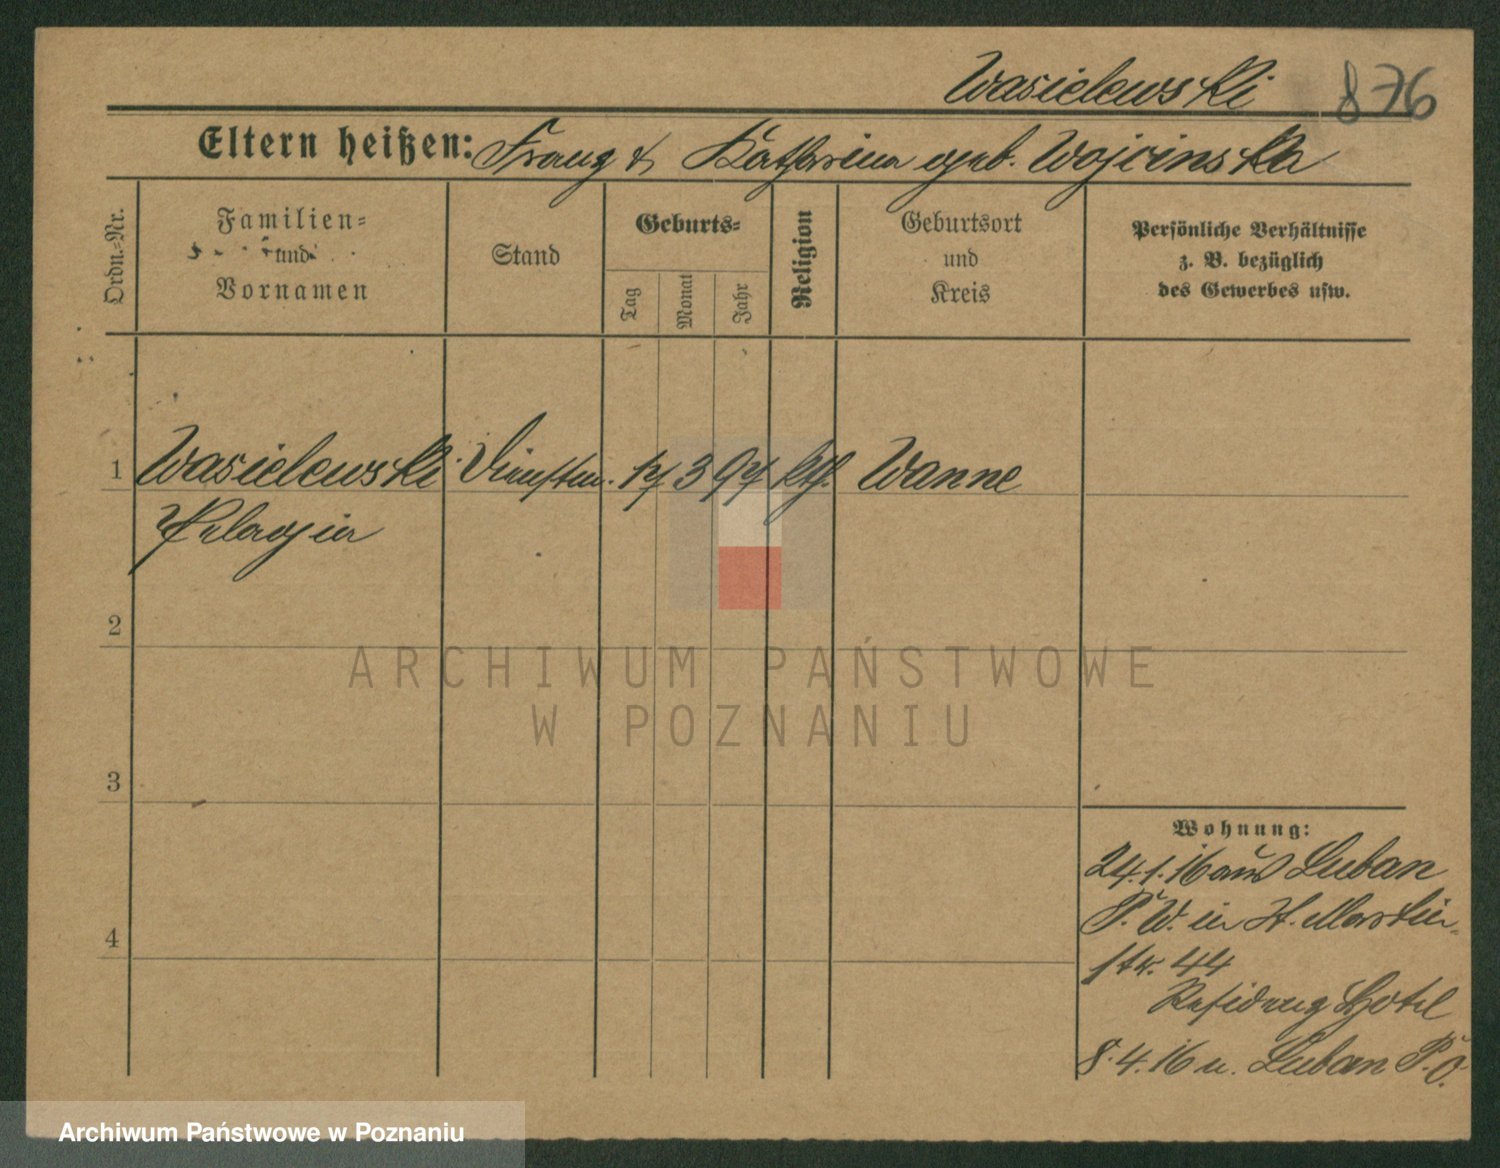 Wasielewski 876
Eltern heißen: Franz & Katharina geb. Wojcinska
Ordn.=Nr.
Familien=
und
Vornamen
Stand
Geburts=
Tag
Monat
Jahr
Religion
Geburtsort
und
Kreis
Persönliche Verhältnisse
z. B. bezüglich
des Gewerbes usw.
1 Wasielewski Dienstm. 17 3 97 kth. Wanne
Pelagia
2
ARCHIWUM PAŃSTWOWE
W POZNANIU
3
Wohnung:
24.1.16 aus Luban
P. W. in St. Martin-
str. 44
Residenz Hotel
8.4.16 n. Luban P. O.
4
Archiwum Państwowe w Poznaniu